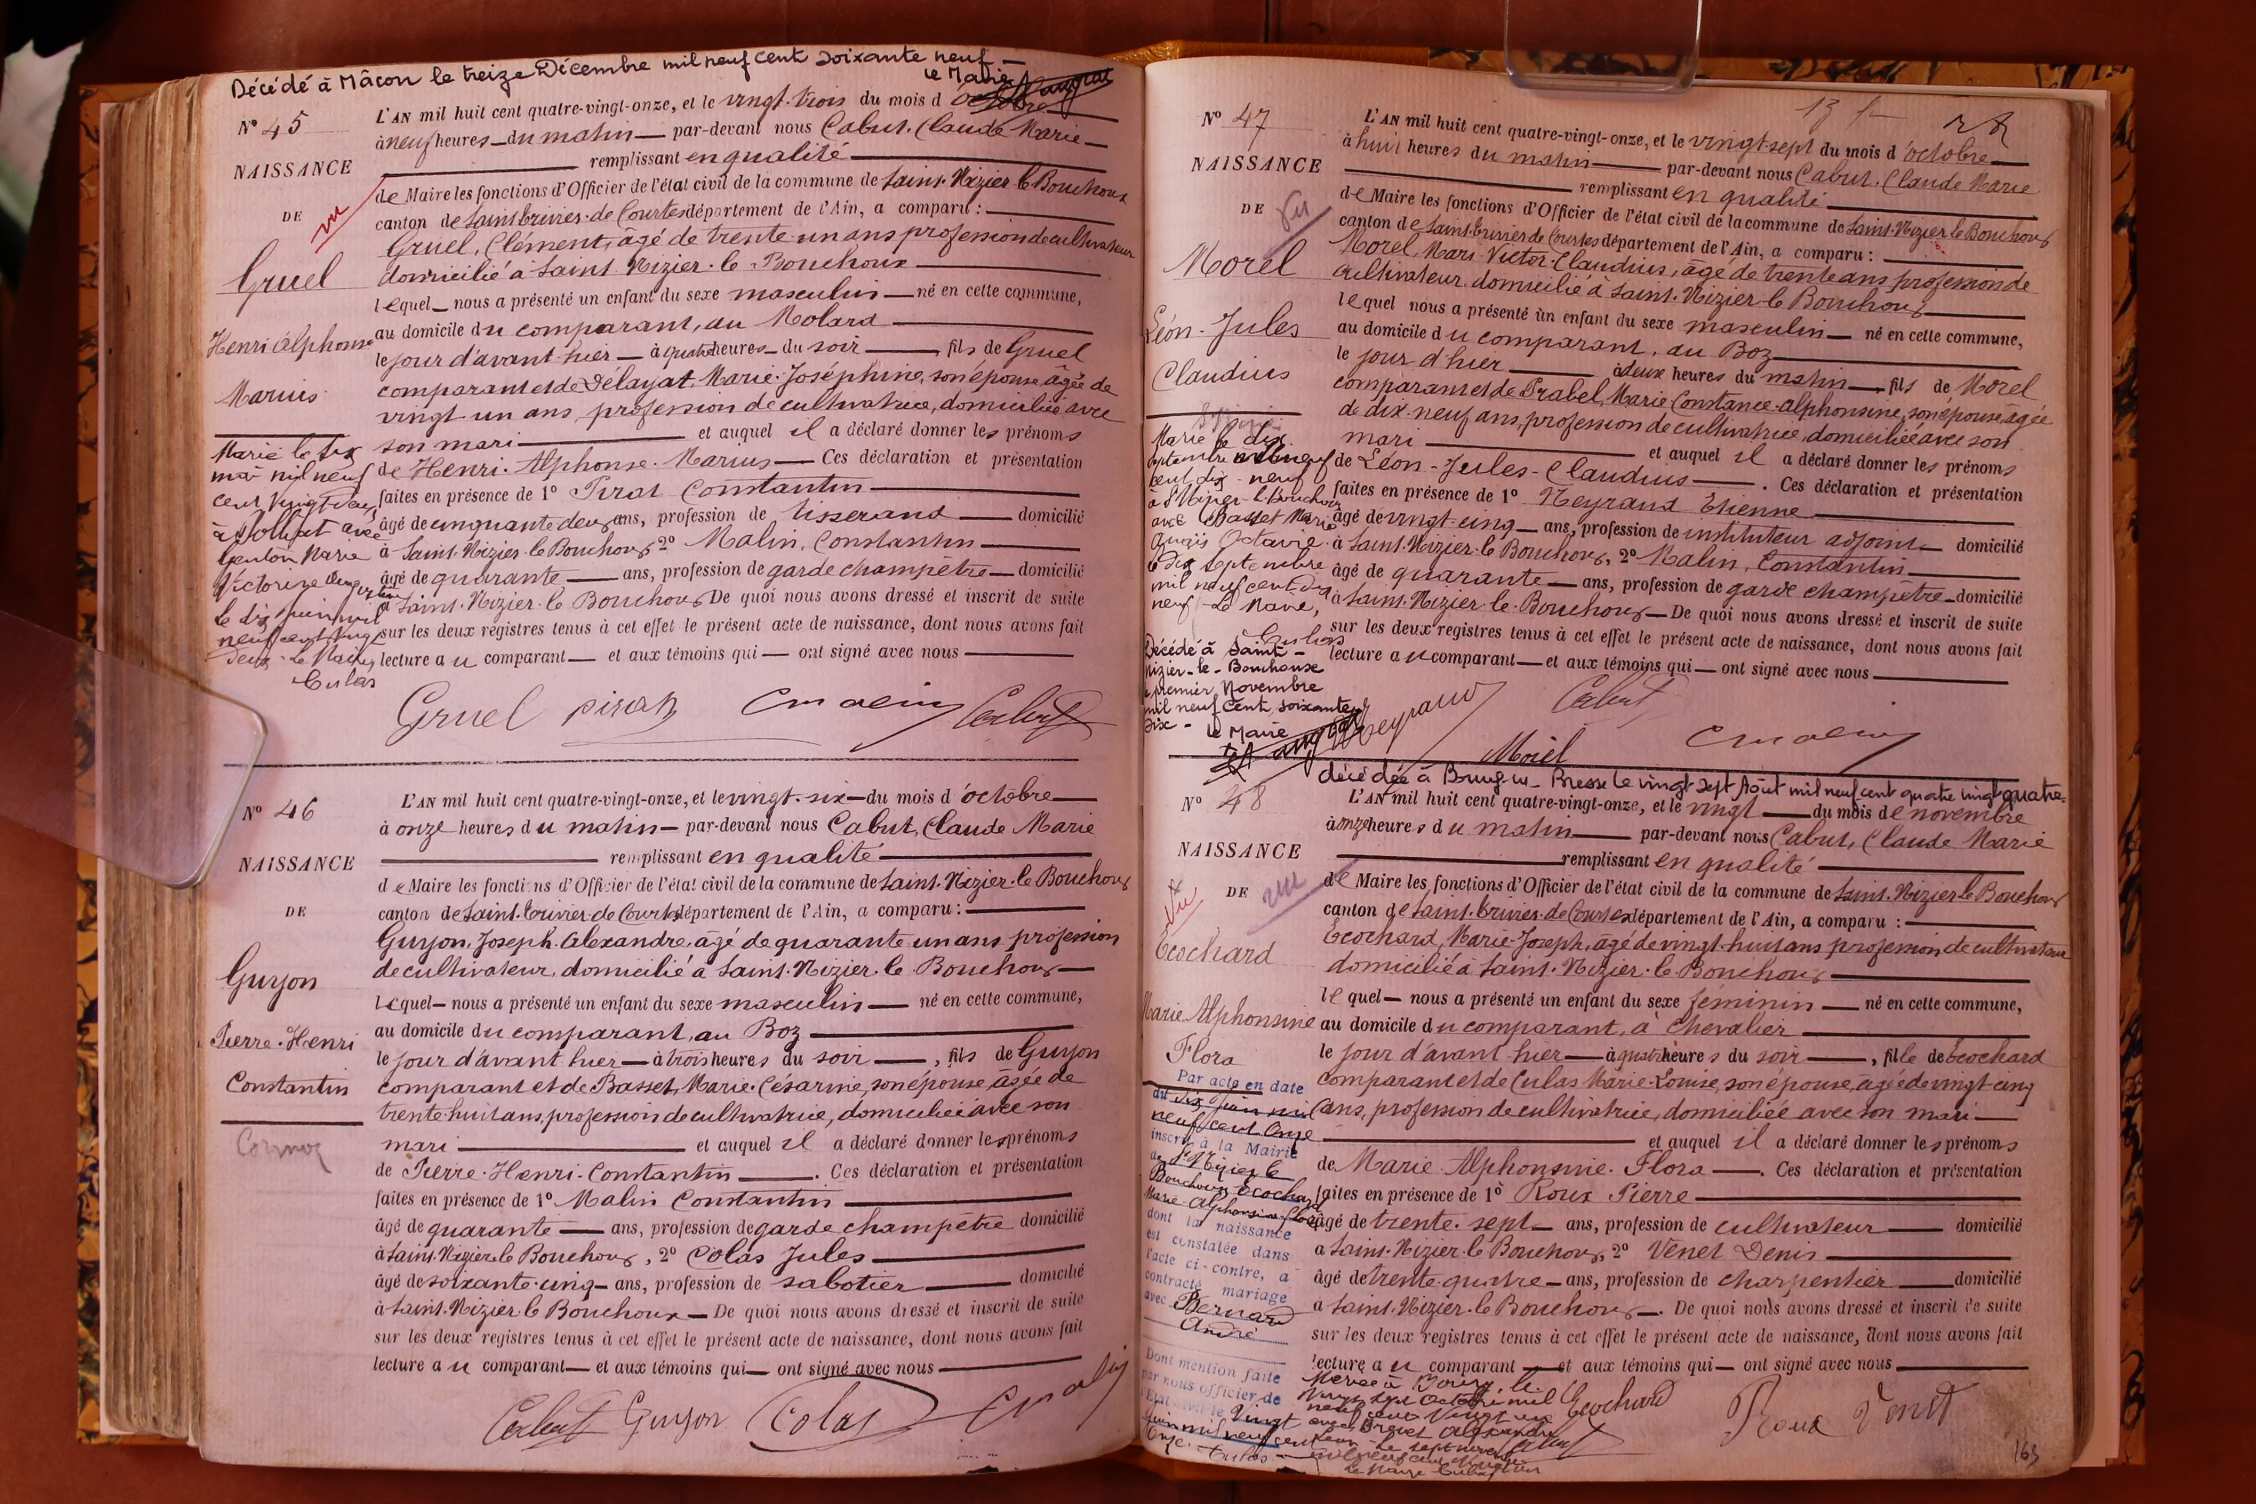 Décédé à Mâcon le treize Décembre mil neuf cent soixante neuf —
le Maire
N° 45
NAISSANCE
DE
vu
Gruel
Henri Alphonse
Marius
Marié le six
mai mil neuf
cent vingt deux
à avec
Marie
Victorine
le dix juin mil
neuf cent vingt
deux - Le Maire,
Culas
L'AN mil huit cent quatre-vingt-onze, et le vingt-trois du mois d'octobre
à neuf heures du matin — par-devant nous Cabut, Claude Marie —
remplissant en qualité
de Maire les fonctions d'Officier de l'état civil de la commune de Saint-Nizier-le-Bouchoux
canton de Saint-trivier-de-Courtes département de l'Ain, a comparu :
Gruel, Clément, âgé de trente-un ans profession de cultivateur
domicilié à Saint-Nizier-le-Bouchoux
lequel — nous a présenté un enfant du sexe masculin — né en cette commune,
au domicile du comparant, au Molard
le jour d'avant-hier — à quatre heures — du soir —, fils de Gruel
comparant et de Délayat, Marie-Joséphine, son épouse âgée de
vingt-un ans, profession de cultivatrice, domiciliée avec
son mari — et auquel il a déclaré donner les prénoms
de Henri-Alphonse-Marius — Ces déclaration et présentation
faites en présence de 1° Pirat Constantin
âgé de cinquante deux ans, profession de tisserand — domicilié
à Saint-Nizier-le-Bouchoux, 2° Malin, Constantin
âgé de quarante — ans, profession de garde champêtre — domicilié
à Saint-Nizier-le-Bouchoux De quoi nous avons dressé et inscrit de suite
sur les deux registres tenus à cet effet le présent acte de naissance, dont nous avons fait
lecture au comparant — et aux témoins qui — ont signé avec nous
Gruel pirat C malin Cabut
N° 46
NAISSANCE
DE
Guyon
Pierre-Henri
Constantin
Cormoz
L'AN mil huit cent quatre-vingt-onze, et le vingt-six — du mois d'octobre
à onze heures du matin — par-devant nous Cabut, Claude Marie
remplissant en qualité
de Maire les fonctions d'Officier de l'état civil de la commune de Saint-Nizier-le-Bouchoux
canton de Saint-trivier-de-Courtes département de l'Ain, a comparu :
Guyon, Joseph-Alexandre, âgé de quarante-un ans profession
de cultivateur, domicilié à Saint-Nizier-le-Bouchoux
lequel — nous a présenté un enfant du sexe masculin — né en cette commune,
au domicile du comparant, au Boz
le jour d'avant hier — à trois heures du soir —, fils de Guyon
comparant et de Basset, Marie-Césarine, son épouse âgée de
trente-huit ans, profession de cultivatrice, domiciliée avec son
mari — et auquel il a déclaré donner les prénoms
de Pierre-Henri-Constantin —. Ces déclaration et présentation
faites en présence de 1° Malin Constantin
âgé de quarante — ans, profession de garde champêtre domicilié
à Saint-Nizier-le-Bouchoux, 2° Colas Jules
âgé de soixante-cinq — ans, profession de sabotier — domicilié
à Saint-Nizier-le-Bouchoux — De quoi nous avons dressé et inscrit de suite
sur les deux registres tenus à cet effet le présent acte de naissance, dont nous avons fait
lecture au comparant — et aux témoins qui — ont signé avec nous
Cabut Guyon Colas C malin
N° 47
NAISSANCE
DE
Vu
Morel
Léon-Jules
Claudius
Marié le dix
septembre mil neuf
cent dix-neuf
à St Nizier-le-Bouchoux
avec Basset Marie
Octavie
Le dix septembre
mil neuf cent dix
neuf - Le Maire,
Culas
Décédé à Saint-
Nizier-le-Bouchoux
le premier Novembre
mil neuf cent soixante
dix -
le Maire
L'AN mil huit cent quatre-vingt-onze, et le vingt-sept du mois d'octobre
à huit heures du matin — par-devant nous Cabut, Claude Marie
remplissant en qualité
de Maire les fonctions d'Officier de l'état civil de la commune de Saint-Nizier-le-Bouchoux
canton de Saint-trivier-de-Courtes département de l'Ain, a comparu :
Morel, Marie-Victor-Claudius, âgé de trente ans profession de
cultivateur, domicilié à Saint-Nizier-le-Bouchoux
lequel nous a présenté un enfant du sexe masculin — né en cette commune,
au domicile du comparant, au Boz
le jour d'hier — à deux heures du matin —, fils de Morel
comparant et de Prabel, Marie Constance-Alphonsine, son épouse, agée
de dix-neuf ans, profession de cultivatrice, domiciliée avec son
mari — et auquel il a déclaré donner les prénoms
de Léon-Jules-Claudius —. Ces déclaration et présentation
faites en présence de 1° Neyraud Etienne
âgé de vingt-cinq — ans, profession de instituteur adjoint — domicilié
à Saint-Nizier-le-Bouchoux, 2° Malin, Constantin
âgé de quarante — ans, profession de garde champêtre — domicilié
à Saint-Nizier-le-Bouchoux — De quoi nous avons dressé et inscrit de suite
sur les deux registres tenus à cet effet le présent acte de naissance, dont nous avons fait
lecture au comparant — et aux témoins qui — ont signé avec nous
Neyraud Cabut
Morel C malin
décédée à Bourg en Bresse le vingt sept Août mil neuf cent quatre vingt quatre
N° 48
NAISSANCE
DE
Vu
vu
Ecochard
Marie Alphonsine
Flora
Par acte en date
du dix juin mil
neuf cent onze
inscrit à la Mairie
de St Nizier le
Bouchoux Ecochard
Marie Alphonsine Flora
dont la naissance
est constatée dans
l'acte ci-contre, a
contracté mariage
avec Bernard
André
Dont mention faite
par nous officier de
l'Etat civil le Vingt
juin mil neuf cent
onze.
Culas
L'AN mil huit cent quatre-vingt-onze, et le vingt — du mois de novembre
à onze heures du matin — par-devant nous Cabut, Claude Marie
remplissant en qualité
de Maire les fonctions d'Officier de l'état civil de la commune de Saint-Nizier-le-Bouchoux
canton de Saint-trivier-de-Courtes département de l'Ain, a comparu :
Ecochard, Marie-Joseph, âgé de vingt-huit ans profession de cultivateur
domicilié à Saint-Nizier-le-Bouchoux
lequel — nous a présenté un enfant du sexe féminin — né en cette commune,
au domicile du comparant, à Chevalier
le jour d'avant-hier — à quatre heures du soir —, fille de Ecochard
comparant et de Culas Marie-Louise, son épouse, agée de vingt cinq
ans, profession de cultivatrice, domiciliée avec son mari —
et auquel il a déclaré donner les prénoms
de Marie-Alphonsine-Flora —. Ces déclaration et présentation
faites en présence de 1° Roux Pierre
âgé de trente-sept — ans, profession de cultivateur — domicilié
à Saint-Nizier-le-Bouchoux, 2° Venet Denis
âgé de trente-quatre — ans, profession de charpentier — domicilié
à Saint-Nizier-le-Bouchoux —. De quoi nous avons dressé et inscrit de suite
sur les deux registres tenus à cet effet le présent acte de naissance, dont nous avons fait
lecture au comparant — et aux témoins qui — ont signé avec nous
Mariée à Bourg, le
vingt sept octobre mil
neuf cent vingt un
avec Alexandre
Le sept novembre
mil neuf cent vingt un
Le Maire Culas
Ecochard Roux Venet
Cabut
163